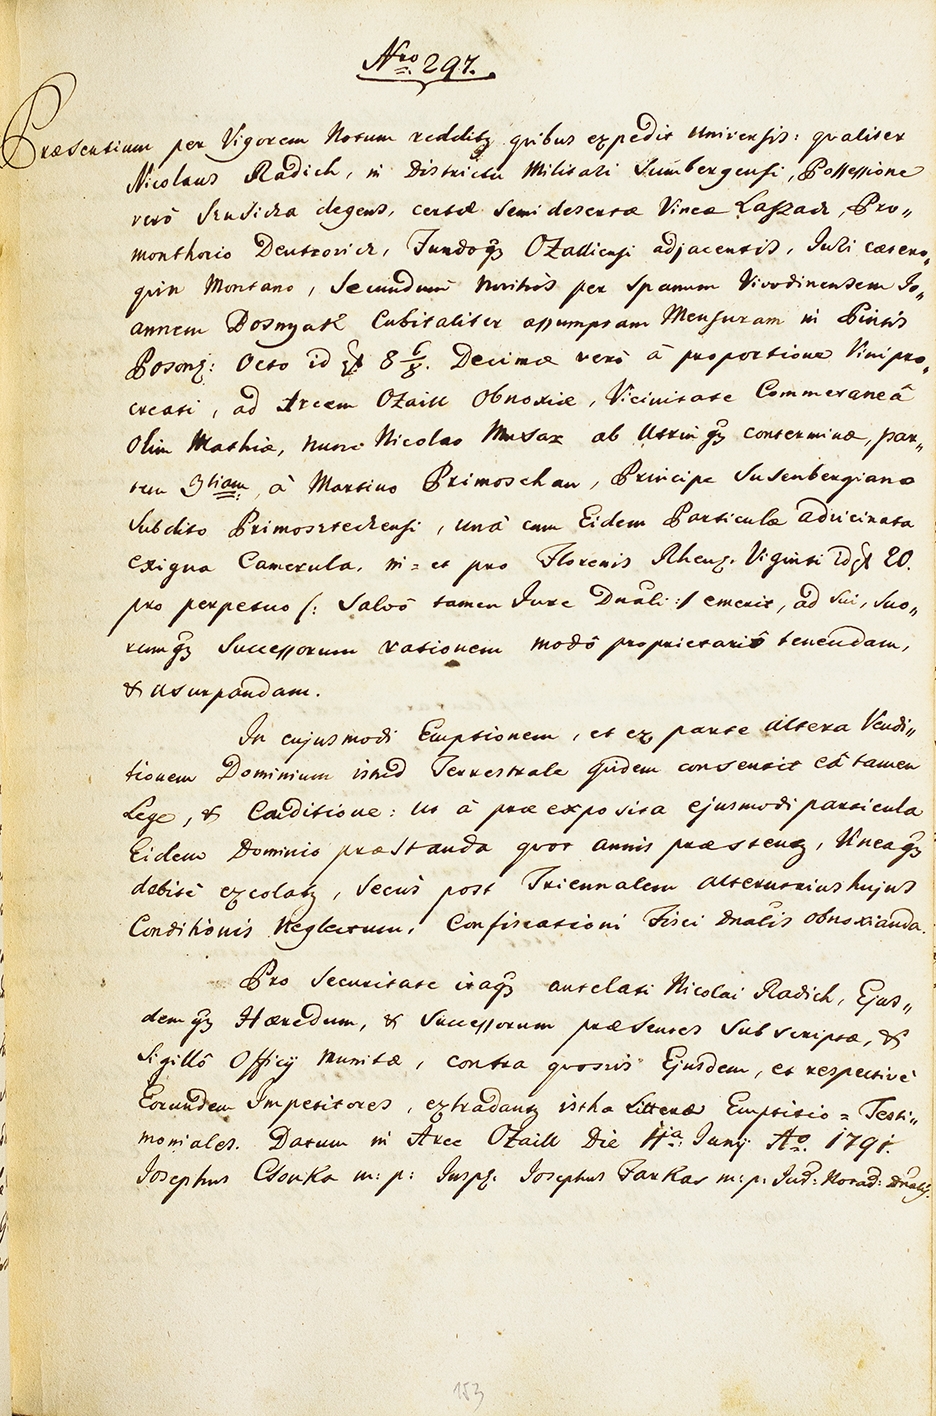 Nro 297.
Præsentium per Vigorem Notum redditq quibus expedit universis: qualiter
Nicolaus Radich, in Districtu Militari Sumbergensi, Possessione
verò degens, certæ semidesertæ Vineæ Laszach, Pro„
monthorio Deutrovich, Fundoq Ozalliensi adjacentis, Juri cætero„
quin Montano, Secundum per Spanum Vivodinensem Jo„
annem Dosnyak Cubitaliter assumptam Mensuram in Pintis
Poson: Octo id 8 Decimæ verò à proportione Vini pro„
creati, ad Arcem Ozaill Obnoxiæ, Vicinitate Commeraneâ
Olim Mathiæ, nunc Nicolao Musax ab Utrinq conterminæ, par„
tem 3tiam, à Martino Primoschan, Principe Susenbergiano
Subdito Primostechensi, unà cum Eidem Particulæ advicinata
exigua Camerula, in = et pro Florenis Rhen. Viginti id 20.
pro perpetuo /: Salvô tamen Jure Dnali :/ emerit, ad Sui, Suo„
rumq Successorum rationem modô proprietariô tenendam,
& usurpandam.
In cujusmodi Emptionem, et ex parte altera Vendi„
tionem Dominium isthoc Terrestrale quidem consensit eâ tamen
Lege, & Conditione: ut à præexposita ejusmodi particula
Eidem Dominio præstanda quot annis præstenq, Vineaq
debitè excolatq, Secùs post Triennalem alterutrius hujus
Conditionis Neglectum, Confiscationi Fisci Dnalis obnoxianda.
Pro Securitate itaq antelati Nicolai Radich, Ejus„
demq Hæredum, & Successorum præsentes Subscriptæ, &
Sigillô Officij munitæ, contra quosvis Ejusdem, et respectivè
Eorundem Impetitores, extradantq isthæ Litteræ Emptitio = Testi„
moniales. Datum in Arce Ozaill Die 11a Junij Ao 1791.
Josephus Csonka m: p: Insp. Josephus Farkas m: p: Jud: Dnalis.
153